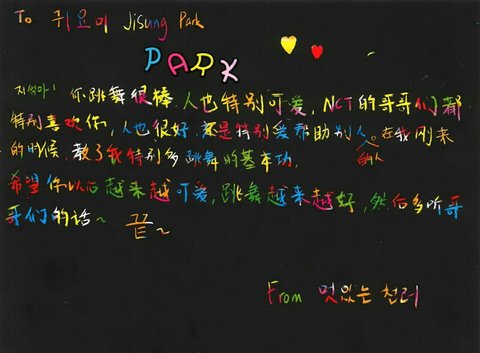 To 귀요미 Jisung Park
PARK
지성아! 你跳舞很棒.人也特别可爱,NCT的哥哥们都
特别喜欢你,人也很好.还是特别爱帮助别人。在我刚来
的人
的时候,教了我特别多跳舞的基本功.
希望你以后越来越可爱,跳舞越来越好,然后多听哥
哥们的话~ 끝~
From 멋있는 천러